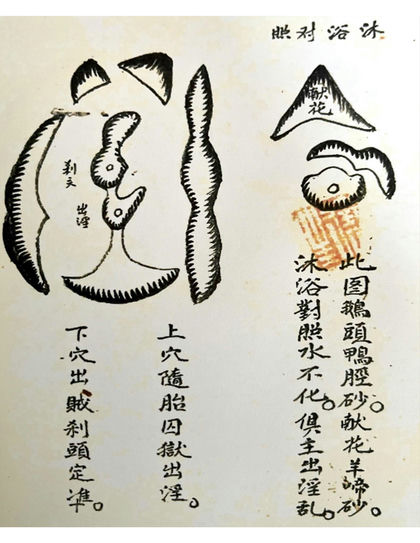 沐浴对照
献花
此图鵝頭鴨脛砂。献花羊蹄砂。
沐浴對照水不化。俱主出淫乱。
上穴隨胎囚獄出淫。
下穴出賊刹頭定準。
出淫